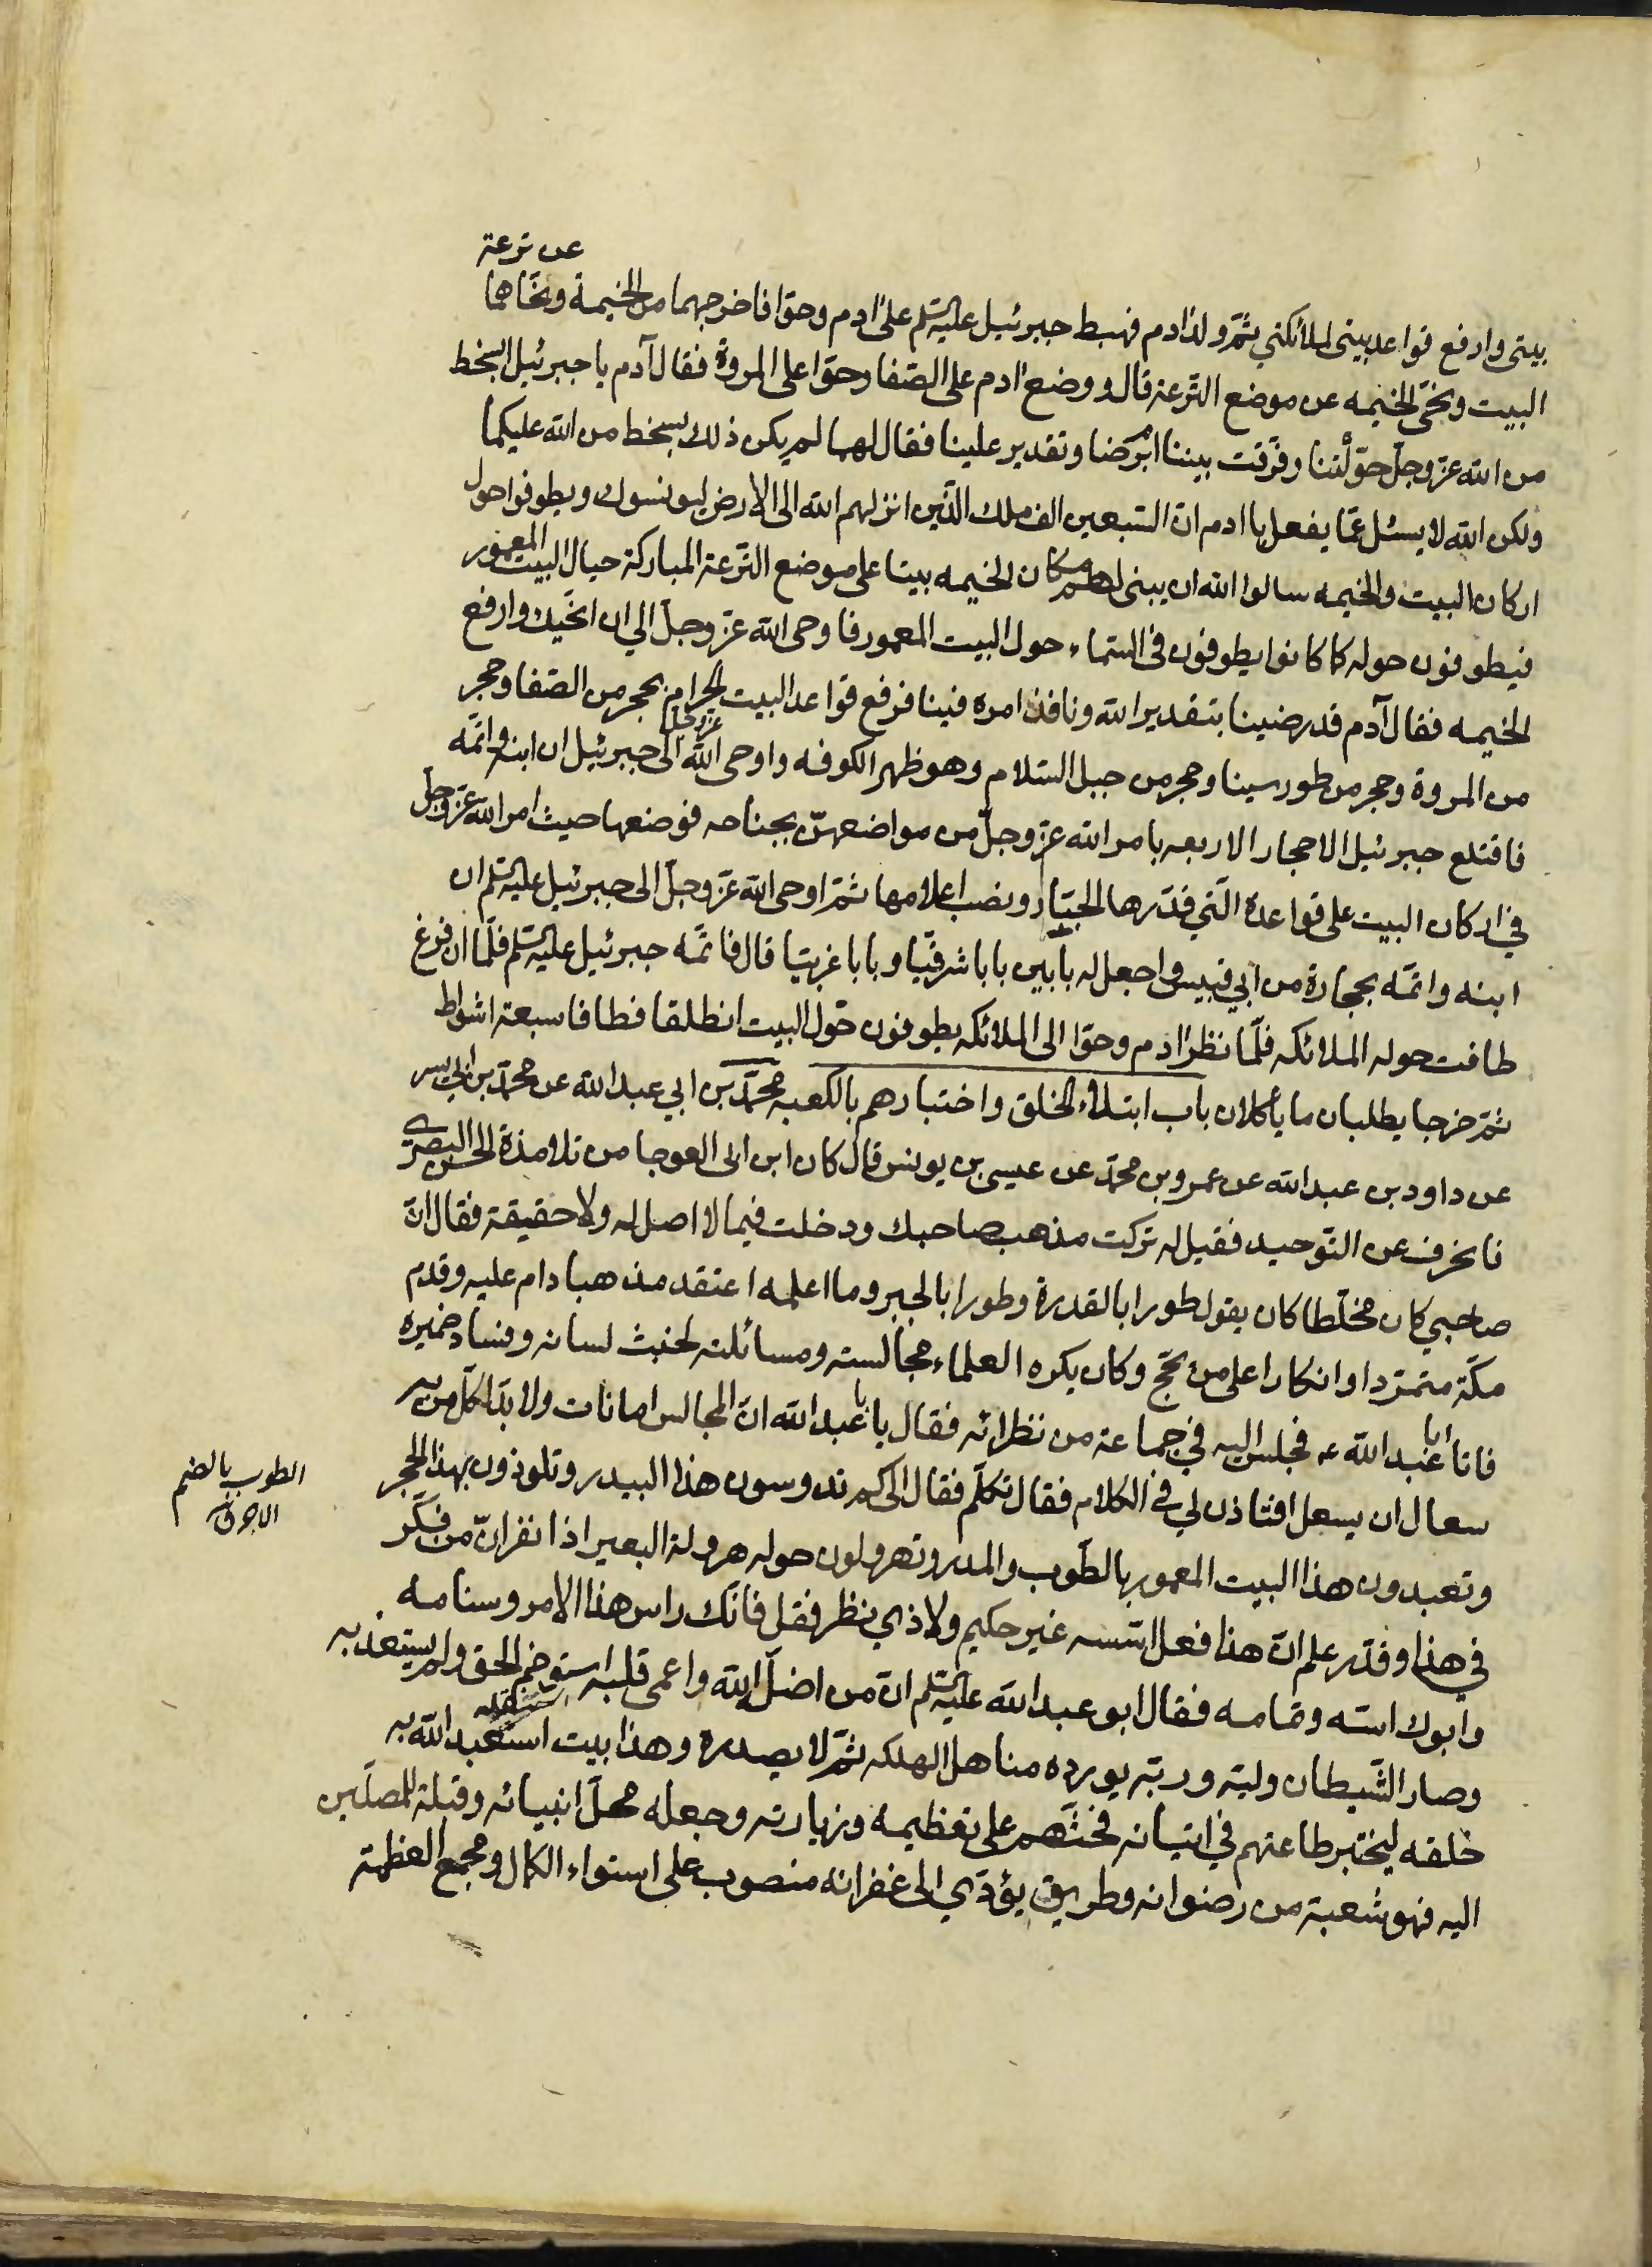 عن ترعة
بيتى وارفع قواعد بيتى لملائكتي ثمّ ولد ادم فهبط جبرئيل عليه السّلم على ادم وحوّا فاخرجهما من الخيمة ونحّاهما
البيت ونحّى الخيمه عن موضع التّرعة قال ووضع ادم على الصّفا وحوّا على المروة فقال آدم يا جبرئيل ابسخط
من الله عزّ وجلّ حوّلتنا وفرّقت بيننا ام رضا وتقدير علينا فقال لهما لم يكن ذلك بسخط من الله عليكما
ولكن الله لا يسئل عمّا يفعل يا ادم انّ السّبعين الف ملك الّذين انزلهم الله الى الارض ليونسوك ويطوفوا حول
اركان البيت والخيمه سالوا الله ان يبنى لهم مكان الخيمه بيتا على موضع التّرعة المباركة حيال البيت المعمور
فيطوفون حوله كما كانوا يطوفون فى السّماء حول البيت المعمور فاوحى الله عزّ وجلّ الي ان انحّيك وارفع
الخيمه فقال آدم قد رضينا بتقدير الله ونافذ امره فينا فرفع قواعد البيت الحرام بحجر من الصّفا وحجر
من المروة وحجر من طور سينا وحجر من جبل السّلام وهو ظهر الكوفه واوحى الله عزّ وجلّ الى جبرئيل ان ابنه واتمّه
فاقتلع جبرئيل الاحجار الاربعه بامر الله عزّ وجلّ من مواضعهنّ بجناحه فوضعها حيث امر الله عزّ وجلّ
في اركان البيت على قواعده الّتي قدّرها الجبّار ونصب اعلامها ثمّ اوحى الله عزّ وجلّ الى جبرئيل عليه السّلم ان
ابنه واتمّه بحجارة من ابي قبيس واجعل له بابين بابا شرقيّا وبابا غربيّا قال فاتمّه جبرئيل عليه السّلم فلمّا ان فرغ
طافت حوله الملائكه فلمّا نظر ادم وحوّا الى الملائكه يطوفون حول البيت انطلقا فطافا سبعة اشواط
ثمّ خرجا يطلبان ما يأكلان باب ابتلاء الخلق واختبارهم بالكعبه محمّد بن ابي عبد الله عن محمّد بن ابي يسر
عن داود بن عبد الله عن عمرو بن محمّد عن عيسى بن يونس قال كان ابن ابى العوجا من تلامذة الحسن البصرّي
فانحرف عن التّوحيد فقيل له تركت مذهب صاحبك ودخلت فيما لا اصل له ولا حقيقة فقال انّ
صاحبي كان مخلّطا كان يقول طورا بالقدرة وطورا بالجبر وما اعلمه اعتقد مذهبا دام عليه وقدم
مكّة متمرّدا وانكارا على من يحّج وكان يكره العلماء مجالسته ومسائلته لخبث لسانه وفساد ضميره
فاتا ابا عبد الله ع فجلس اليه في جماعة من نظرائه فقال يا ابا عبد الله انّ المجالس امانات ولا بدّ لكلّ من به
سعال ان يسعل افتاذن لي فى الكلام فقال تكلّم فقال الى كم تدوسون هذا البيدر وتلوذون بهذا الحجر
وتعبدون هذا البيت المعمور بالطّوب والمدر وتهرولون حوله هرولة البعير اذا نفر انّ من فكّر
في هذا وقدّر علم انّ هذا فعل اسّسه غير حكيم ولا ذي نظر فقل فانّك راس هذا الامر وسنامه
وابوك اسّه وتمامه فقال ابو عبد الله عليه السّلم انّ من اضلّ الله واعمى قلبه استوخم الحق ولم يستعذبه
وصار الشّيطان وليّه وربّه يورده مناهل الهلكه ثمّ لا يصدره وهذا بيت استعبد الله به
خلقه ليختبر طاعتهم في اتيانه فحثّهم على تعظيمه وزيارته وجعله محلّ انبيائه وقبلة للمصلّين
اليه فهو شعبة من رضوانه وطريق يؤدّي الى غفرانه منصوب على استواء الكمال ومجمع العظمة
الطوب بالضم
الاجر ق